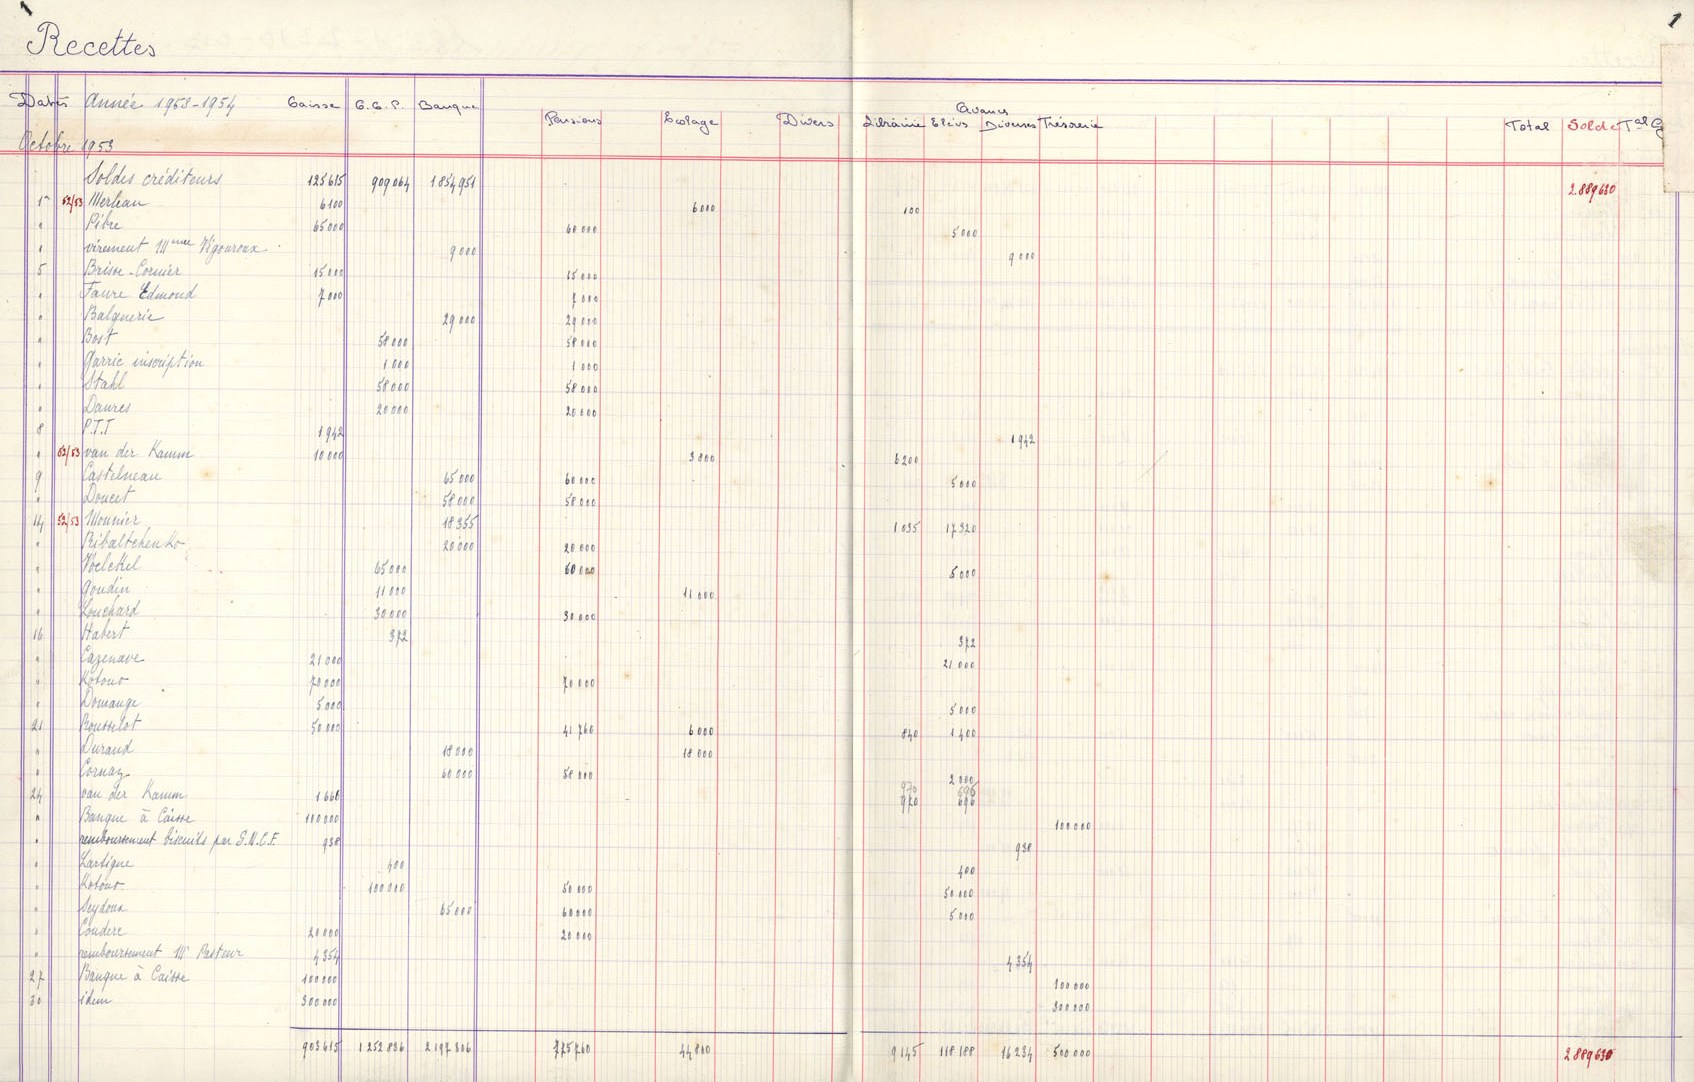 1 1
Recettes
Dates Année 1953-1954 Caisse C.C.P. Banque Pensions Ecolage Divers Librairie Elèves Avances Diverses Trésorerie Total Solde Tal G
Octobre 1953
Soldes créditeurs 125615 909064 1854951 2889630
1er 52/53 Merleau 6100 6000 100
" Pibre 65000 60000 5000
" virement Mme Vigouroux 9000 9000
5 Brisse-Cornier 15000 15000
" Faure Edmond 7000 7000
" Balguerie 29000 29000
" Bost 58000 58000
" Garric inscription 1000 1000
" Stahl 58000 58000
" Daures 20000 20000
8 P.T.T 1942 1942
" 52/53 van der Kamm 10000 3800 6200
9 Castelneau 65000 60000 5000
" Doucet 58000 58000
14 52/53 Mounier 18355 1035 17320
" Ribaltchenko 20000 20000
" Voelckel 65000 60000 5000
" Goudin 11000 11000
" Louchard 30000 30000
16 Habert 372 372
" Cazenave 21000 21000
" Kotouo 70000 70000
" Domange 5000 5000
21 Rousselot 50000 41760 6000 840 1400
" Durand 18000 18000
" Cornaz 60000 58000 2000
24 van der Kamm 1666 970 696
970 696
" Banque à Caisse 100000 100000
" remboursement biscuits par S.N.C.F. 938 938
" Lartigue 400 400
" Kotouo 100000 50000 50000
" Seydoux 65000 60000 5000
" Coudere 20000 20000
" remboursement Mr Pasteur 4354 4354
27 Banque à Caisse 100000 100000
30 idem 300000 300000
903615 1252836 2197306 775760 44800 9145 118188 16234 500000 2889630